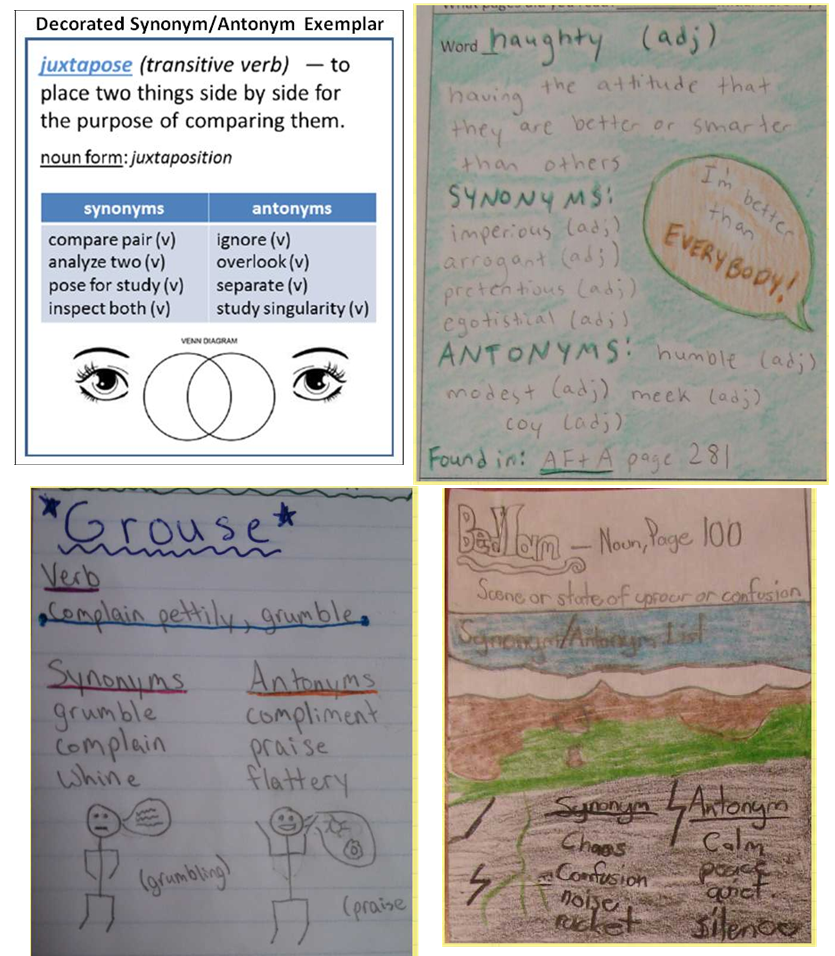 Decorated Synonym/Antonym Exemplar
juxtapose (transitive verb) — to
place two things side by side for
the purpose of comparing them.
noun form: juxtaposition
synonyms antonyms
compare pair (v) ignore (v)
analyze two (v) overlook (v)
pose for study (v) separate (v)
inspect both (v) study singularity (v)
VENN DIAGRAM
Word haughty (adj)
having the attitude that
they are better or smarter
than others
SYNONYMS:
imperious (adj)
arrogant (adj)
pretentious (adj)
egotistical (adj)
I'm better
than
EVERYBODY!
ANTONYMS: humble (adj)
modest (adj) meek (adj)
coy (adj)
Found in: AF+A page 281
*Grouse*
Verb
Complain pettily, grumble
Synonyms Antonyms
grumble compliment
complain praise
whine flattery
(grumbling)
(praise
Bedlam — Noun, Page 100
Scene or state of uproar or confusion
Synonym/Antonym List
Synonym Antonym
Chaos Calm
Confusion peace
noise quiet
racket silence